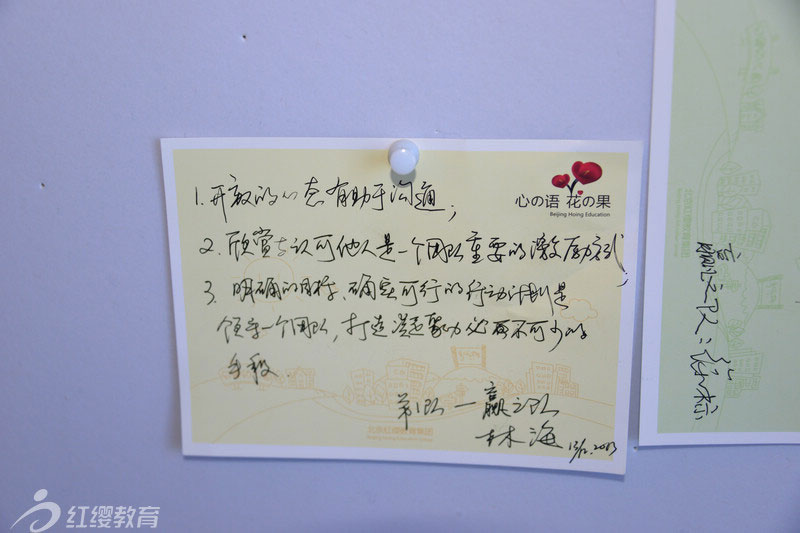 心の语 花の果
Beijing Hoing Education
1. 开敞的心态有助于沟通；
2. 欣赏与认可他人是一个团队重要的激励方式；
3. 明确的目标、确实可行的行动计划是
领导一个团队，打造凝聚力必不可少的
手段.
第1队—赢之队
林海 13/12.2013
北京红缨教育集团
Beijing Hoing Education Group
之队：
红缨教育